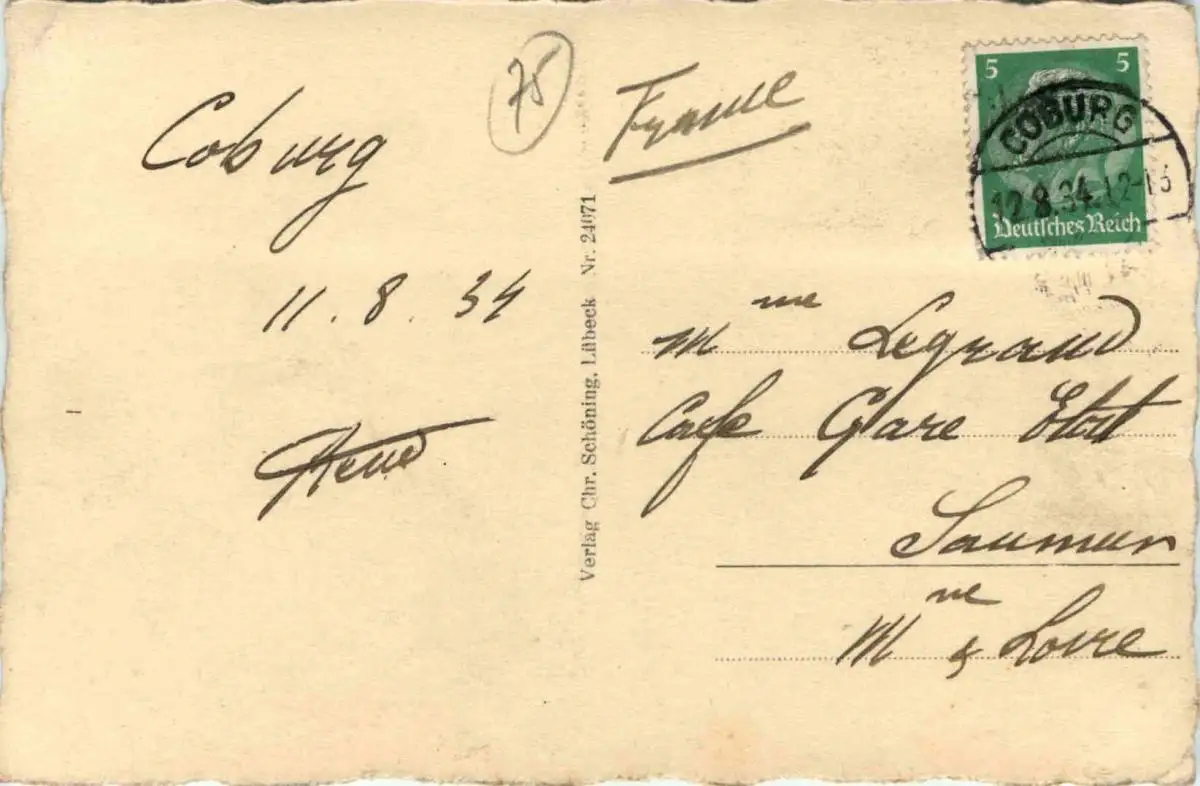 Coburg
11.8.34
René
75
France
Verlag Chr. Schöning, Lübeck Nr. 24071
5 5
COBURG
12.8.34.12-13
Deutsches Reich
Mme Legrand
Café Gare Etat
Saumur
Mne & Loire